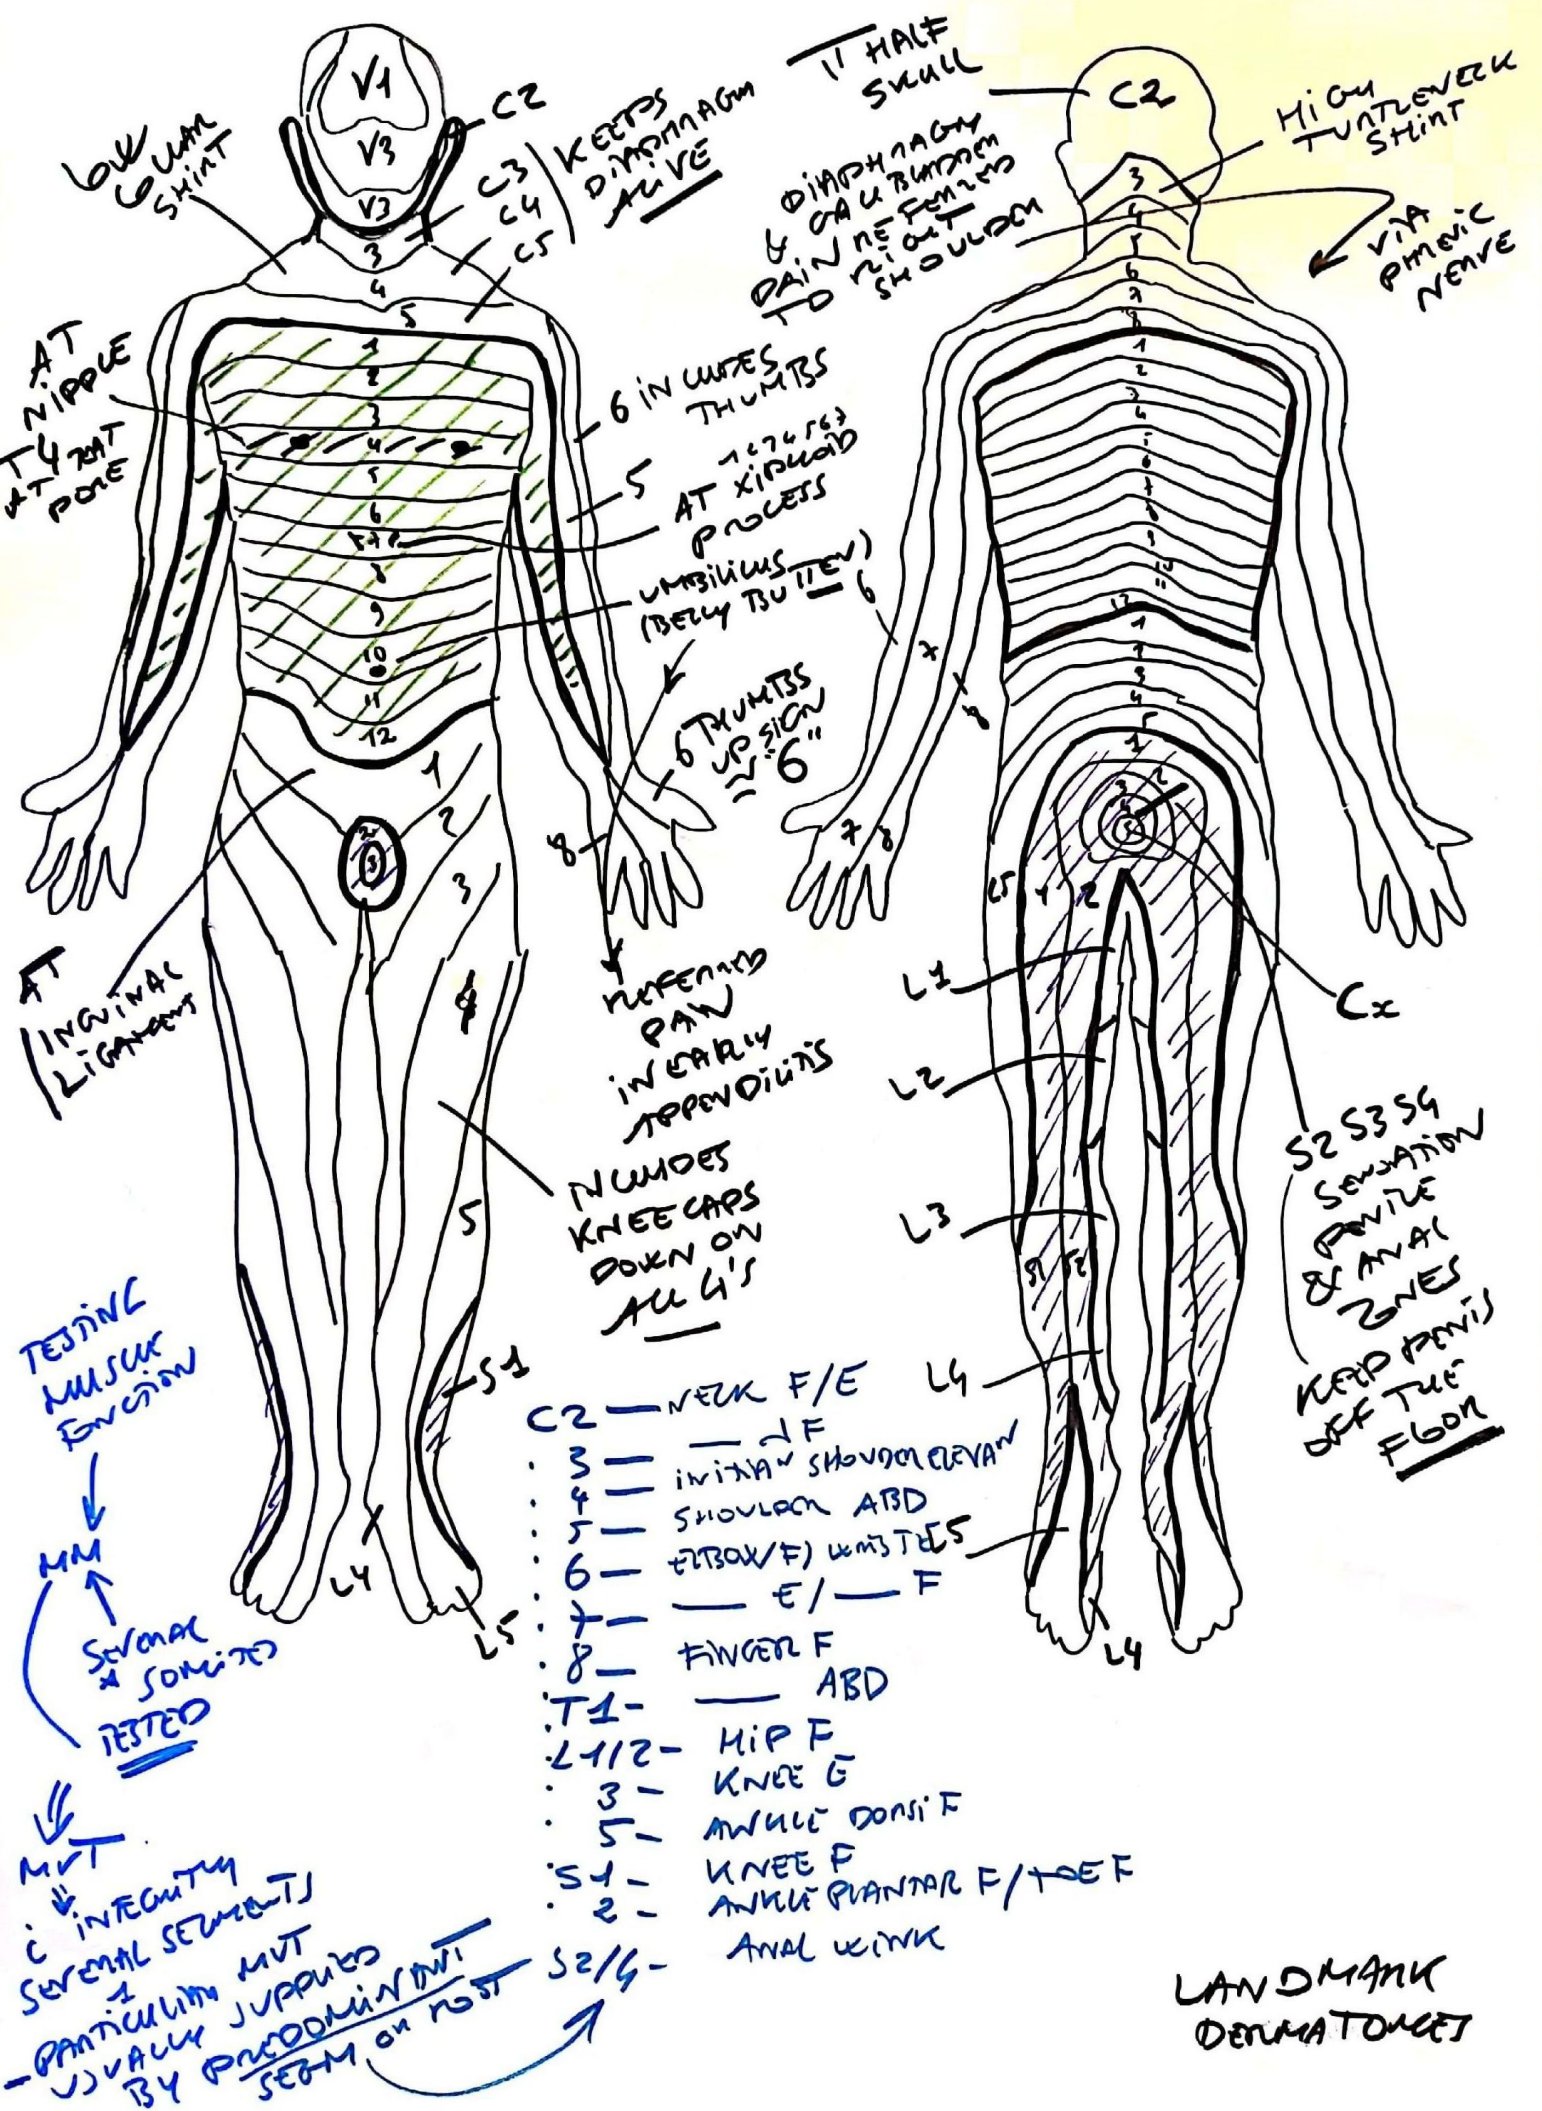 LOW
COLLAR
SHIRT
V1
V3
V3
C2
C3
C4
C5
KEEPS
DIAPHRAGM
ALIVE
3
4
5
AT
NIPPLE
T4 TEAT
AT
PORE
1
2
3
4
5
6
8
9
10
11
12
6 INCLUDES
THUMBS
5
AT XIPHOID
PROCESS
UMBILICUS
(BELLY BUTTEN)
6 THUMBS
UP SIGN
≈ "6"
8
1
2
3
4
5
2
3
AT
INGUINAL
LIGAMENT
REFERRED
PAIN
IN EARLY
APPENDICITIS
INCLUDES
KNEE CAPS
DOWN ON
ALL 4'S
S1
L4
L5
HALF
SKULL
C2
HIGH
TURTLENECK
SHIRT
DIAPHRAGM
& GALL BLADDER
PAIN REFERRED
TO RIGHT
SHOULDER
VIA
PHRENIC
NERVE
3
4
5
6
7
8
1
2
3
4
5
6
7
8
9
10
11
12
1
2
3
4
5
1
2
3
4
5
6
7
8
7
8
L5
1
2
L1
L2
L3
S1
S2
L4
L5
L4
Cx
S2 S3 S4
SENSATION
PENILE
& ANAL
ZONES
KEEP PENIS
OFF THE
FLOOR
TESTING
MUSCLE
FUNCTION
MM
SEVERAL
SOMITES
TESTED
MVT
INTEGRITY
SEVERAL SEGMENTS
- PARTICULAR MVT
USUALLY SUPPLIED
BY PREDOMINANT
SEGM OR ROOT
C2 — NECK F/E
3 — — F
4 — SHOULDER ELEVAN
5 — SHOULDER ABD
6 — ELBOW (F) WRIST E
7 — — E/ — F
8 — FINGER F
T1 - — ABD
L1/2 - HIP F
3 - KNEE E
5 - ANKLE DORSI F
S1 - KNEE F
2 - ANKLE PLANTAR F/TOE F
S2/4 - ANAL WINK
LANDMARK
DERMATOMES